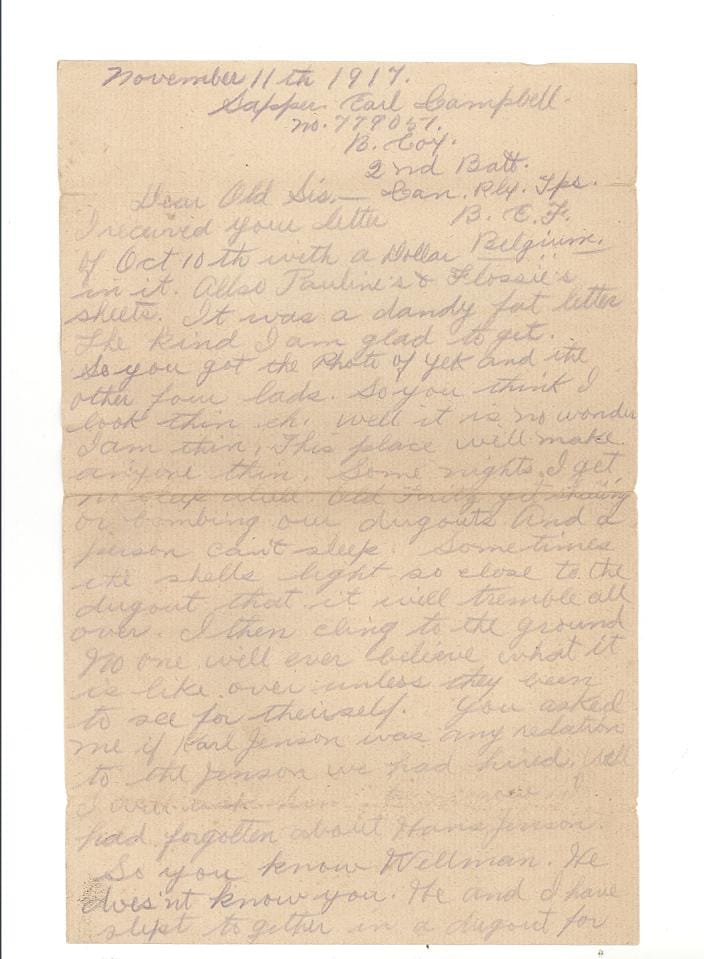 November 11th 1917.
Sapper Earl Campbell.
No. 779057.
B. Coy.
2nd Batt.
Dear Old Sis.— Can. Rly. Tps.
I received your letter B. E. F.
of Oct 10th with a Dollar Belgium.
in it. Allso Pauline's & Flossie's
sheets. It was a dandy fat letter
the kind I am glad to get.
So you got the Photo of Yek and the
other four lads. So you think I
look thin eh. Well it is no wonder
I am thin. This place will make
anyone thin. Some nights I get
no sleep Old Fritz get
or bombing our dugouts And a
person can't sleep. Sometimes
the shells light so close to the
dugout that it will tremble all
over. I then cling to the ground
No one will ever believe what it
is like over unless they been
to see for theirself. You asked
me if Karl Jenson was any relation
to the Jenson we had hired. Well
I
had forgotten about Hans Jenson.
So you know Wellman. He
does'nt know you. He and I have
slept together in a dugout for